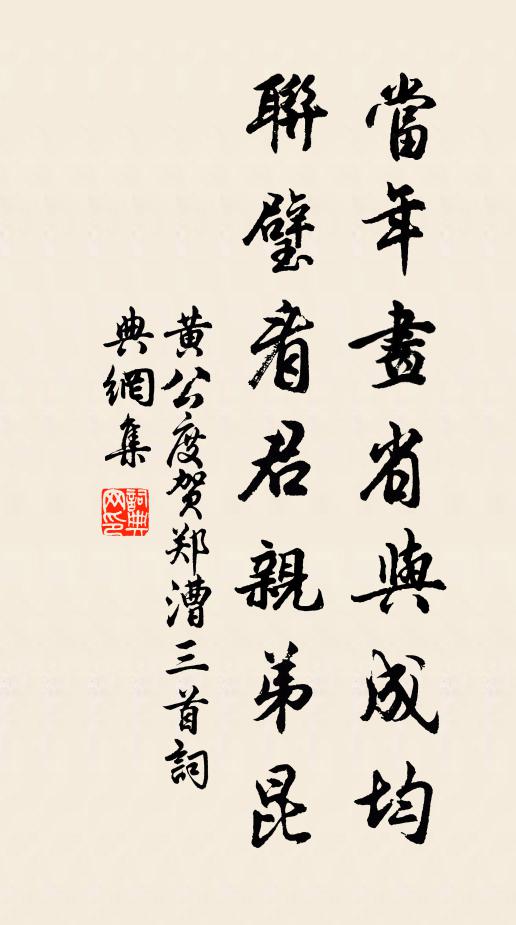 當年畫省與成均
聯璧看君親弟昆
黄公度贺郑漕三首詞
典網集
詞典網印